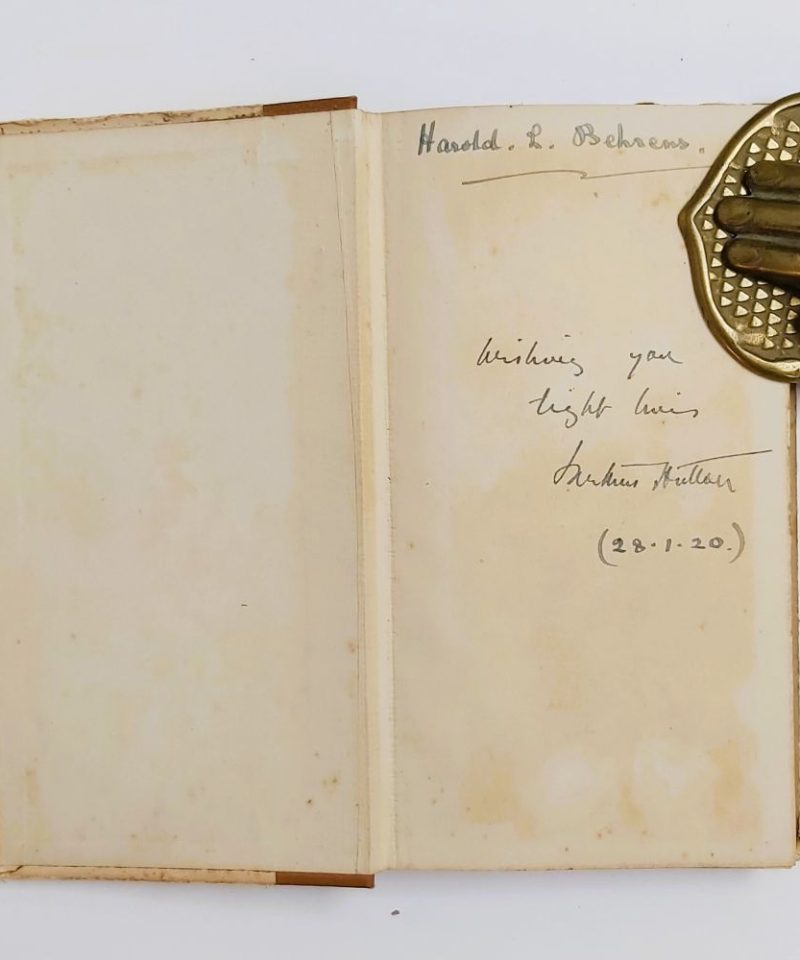 Harold. L. Behrens.
Wishing you
tight lines
J Arthur Hutton
(28.1.20.)